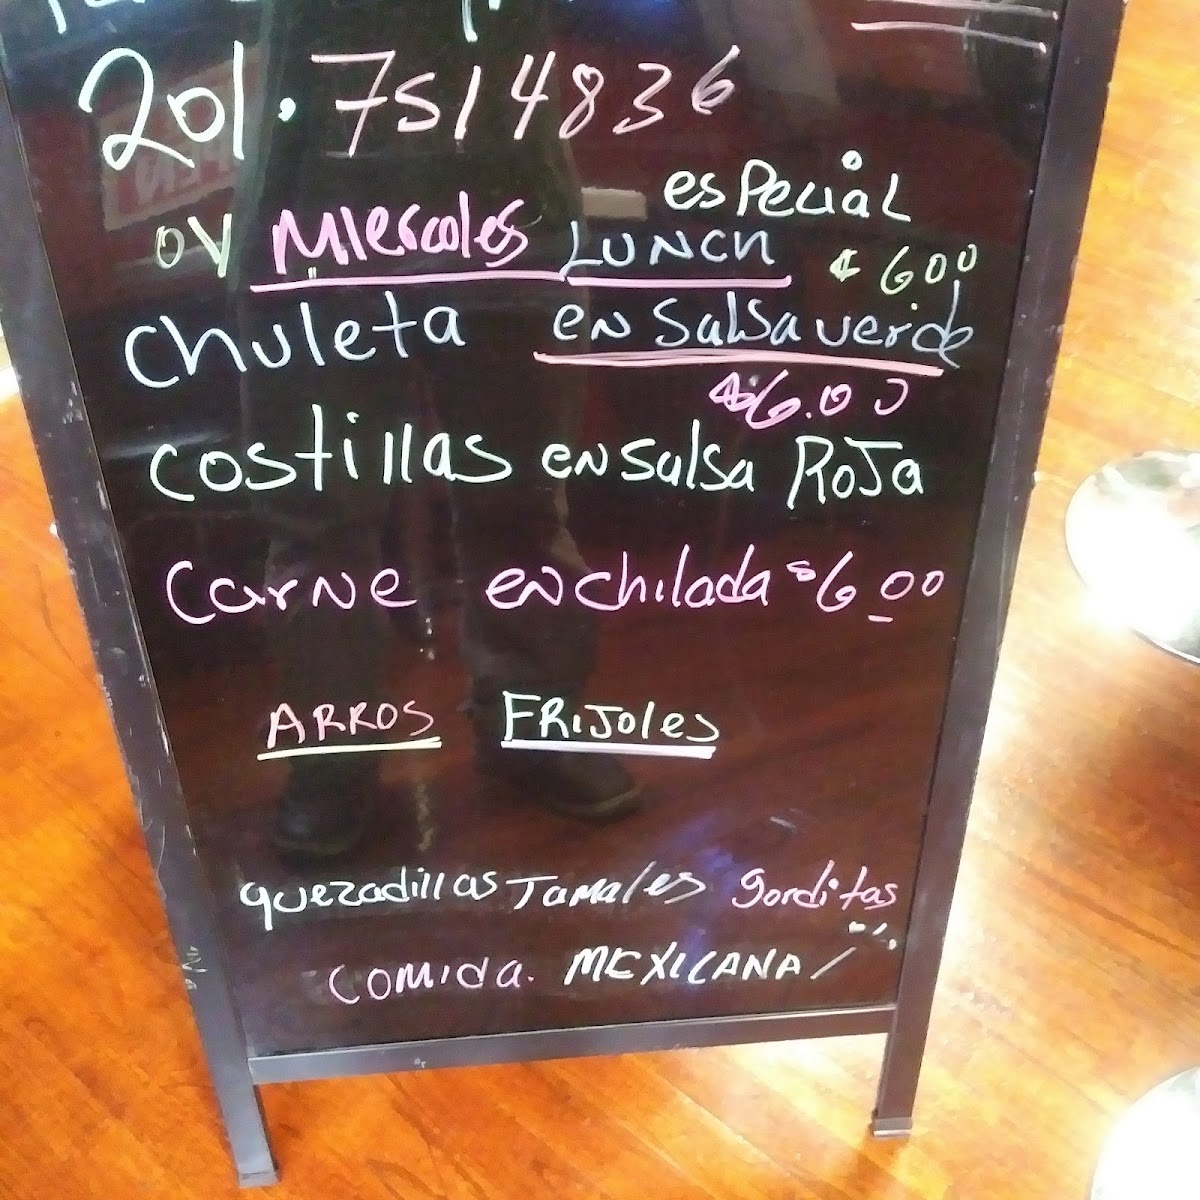 201.7514836
especial
oy Miercoles LUNCH $6.00
chuleta en salsa verde
$6.00
costillas en salsa Roja
carne enchilada $6.00
ARROS FRIJoles
quezadillas Tamales gorditas
comida. MEXICANA